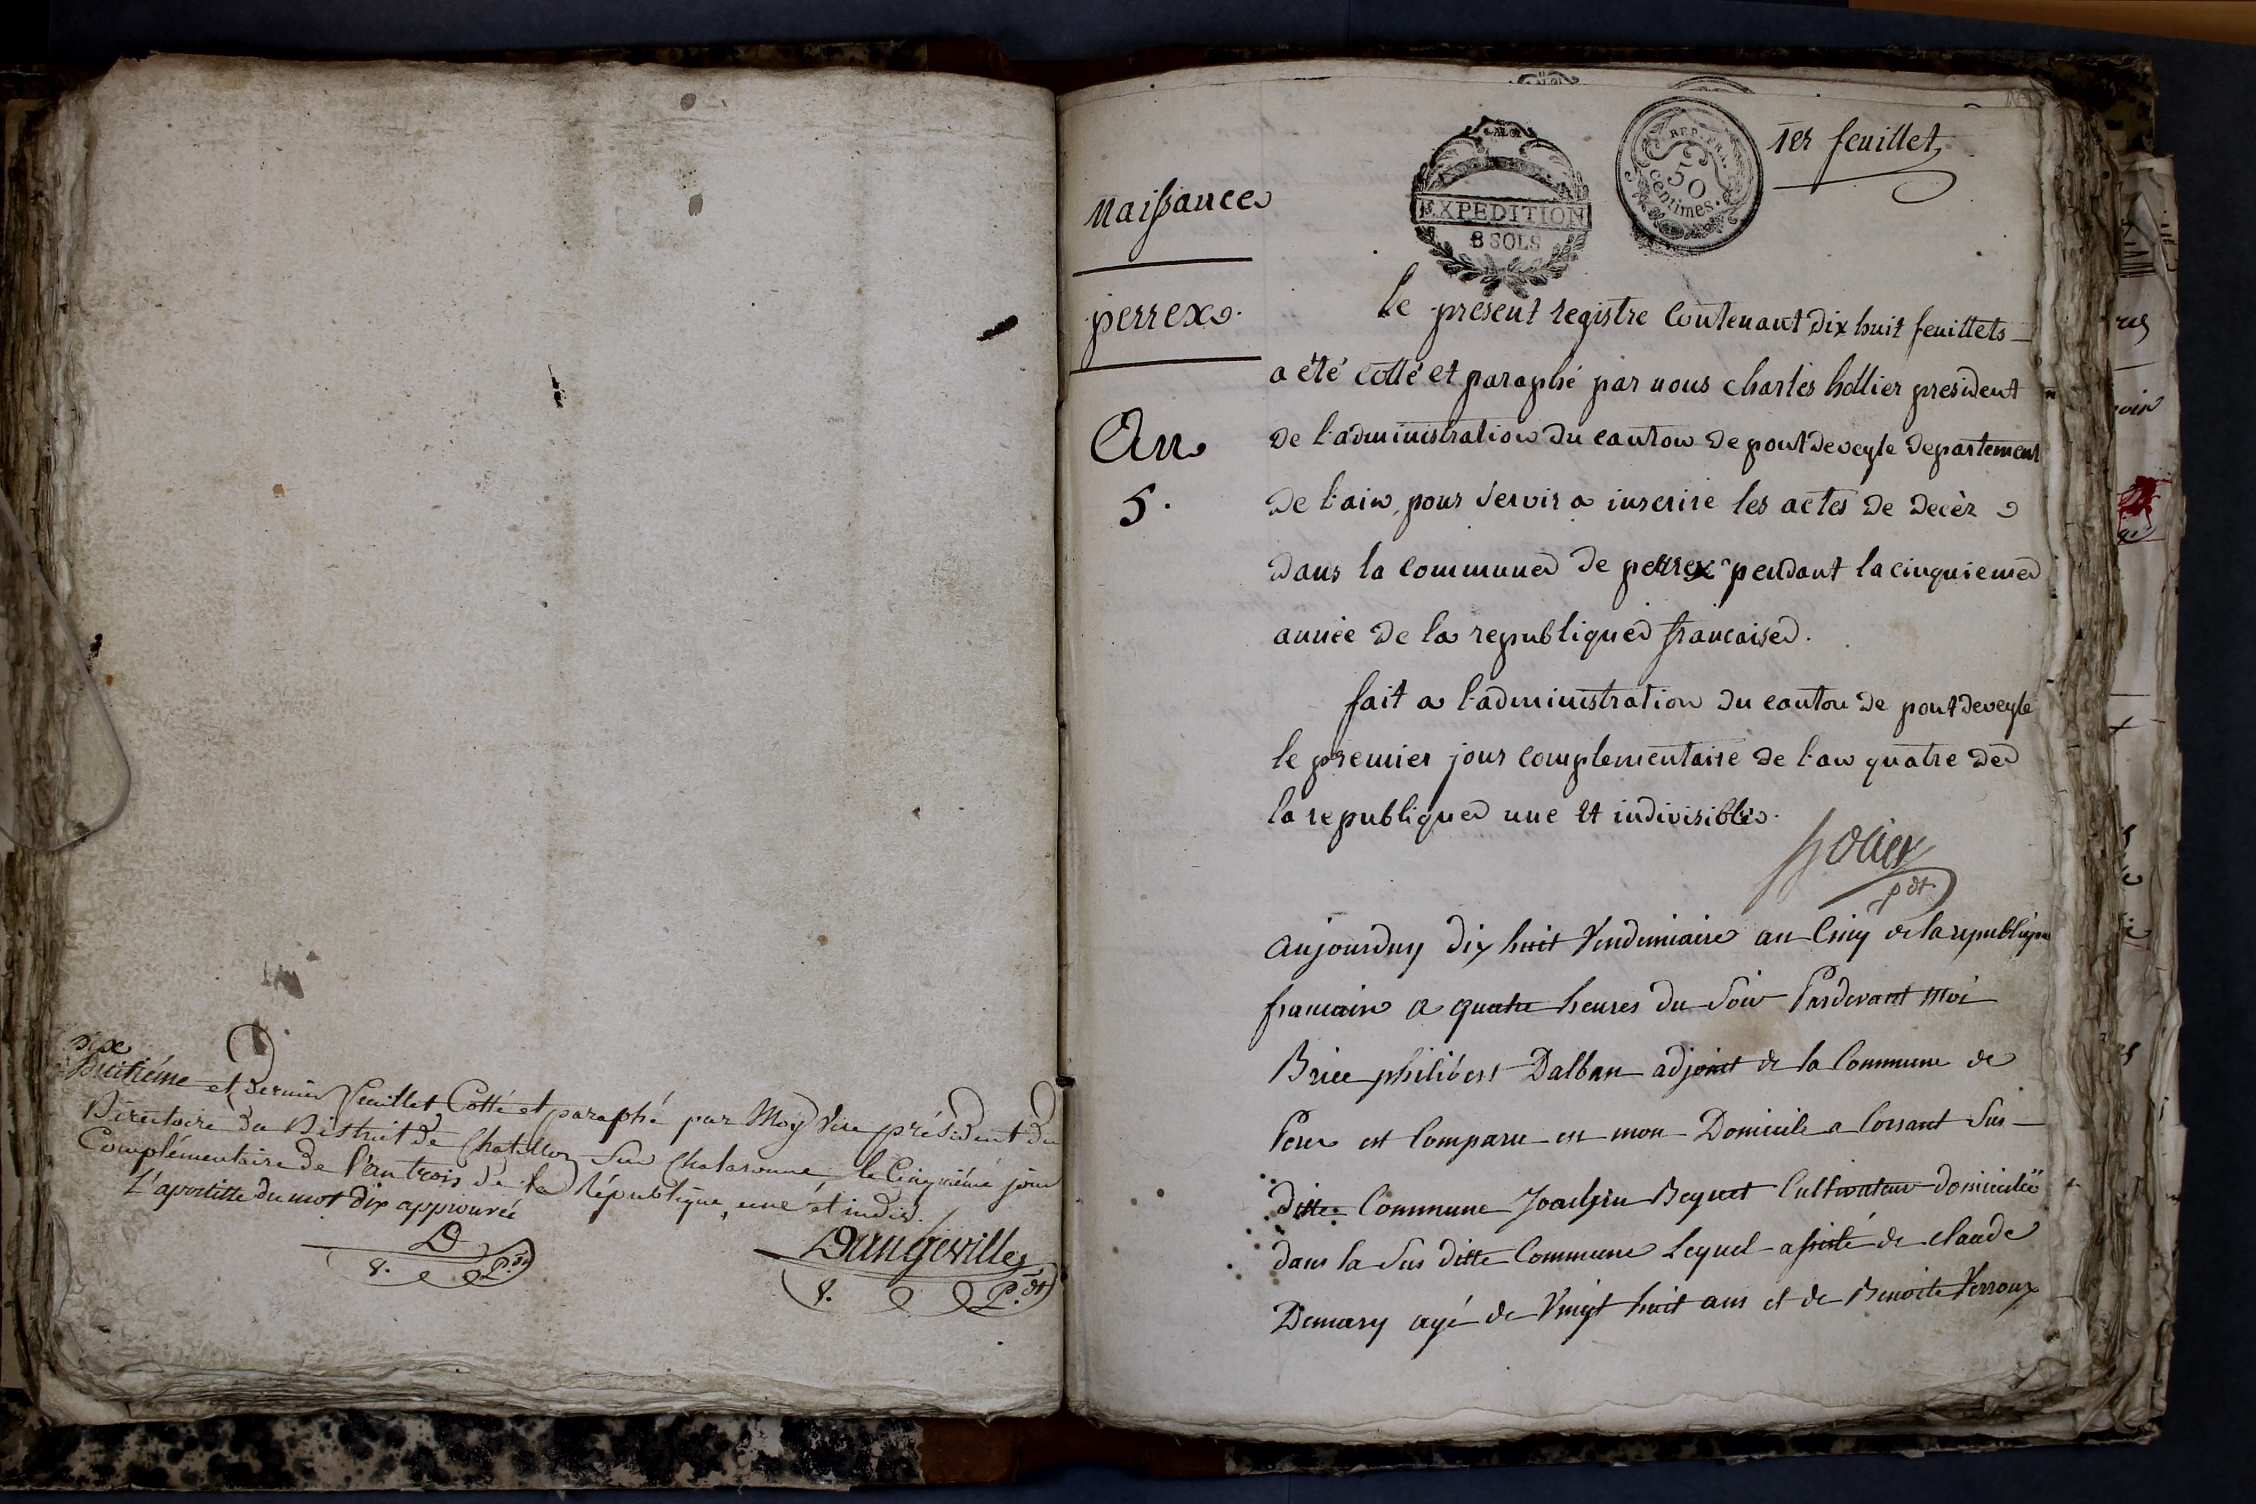 dix
huitiéme et dernier feuillet Cotté et paraphé par Moy Vice président du
Directoire du District de Chatillon Sur Chalaronne, le Cinquiéme jour
Complémentaire de l'an trois de la République, une et indiv.
L'apostille du mot dix approuvée
D
P.dt
Dangeville
P.dt
1er feuillet
REP. FRA.
50
centimes.
EXPEDITION
8 SOLS
Naissance
perrex.
An
5.
le présent registre contenant dix huit feuillets
a été cotté et paraphé par nous charles hollier président
de l'administration du canton de pontdeveyle departement
de l'ain, pour servir a inscrire les actes de decèz
dans la commune de perrex pendant la cinquieme
année de la republique francaise.
fait a l'administration du canton de pontdeveyle
le premier jour complementaire de l'an quatre de
la republique une et indivisible.
hollier
pdt
aujourduy dix huit Vendemiaire an Cinq de la republique
francaise a quatre heures du Soir Pardevant moi
Brice philibert Dalban adjoint de la Commune de
Perex est Comparu en mon Domicile a Corsant Sus
ditte Commune Joachin Bequet Cultivateur domicilié
dans la Sus ditte Commune Lequel assisté de claude
Demary agé de Vingt huit ans et de Benoite Verroux